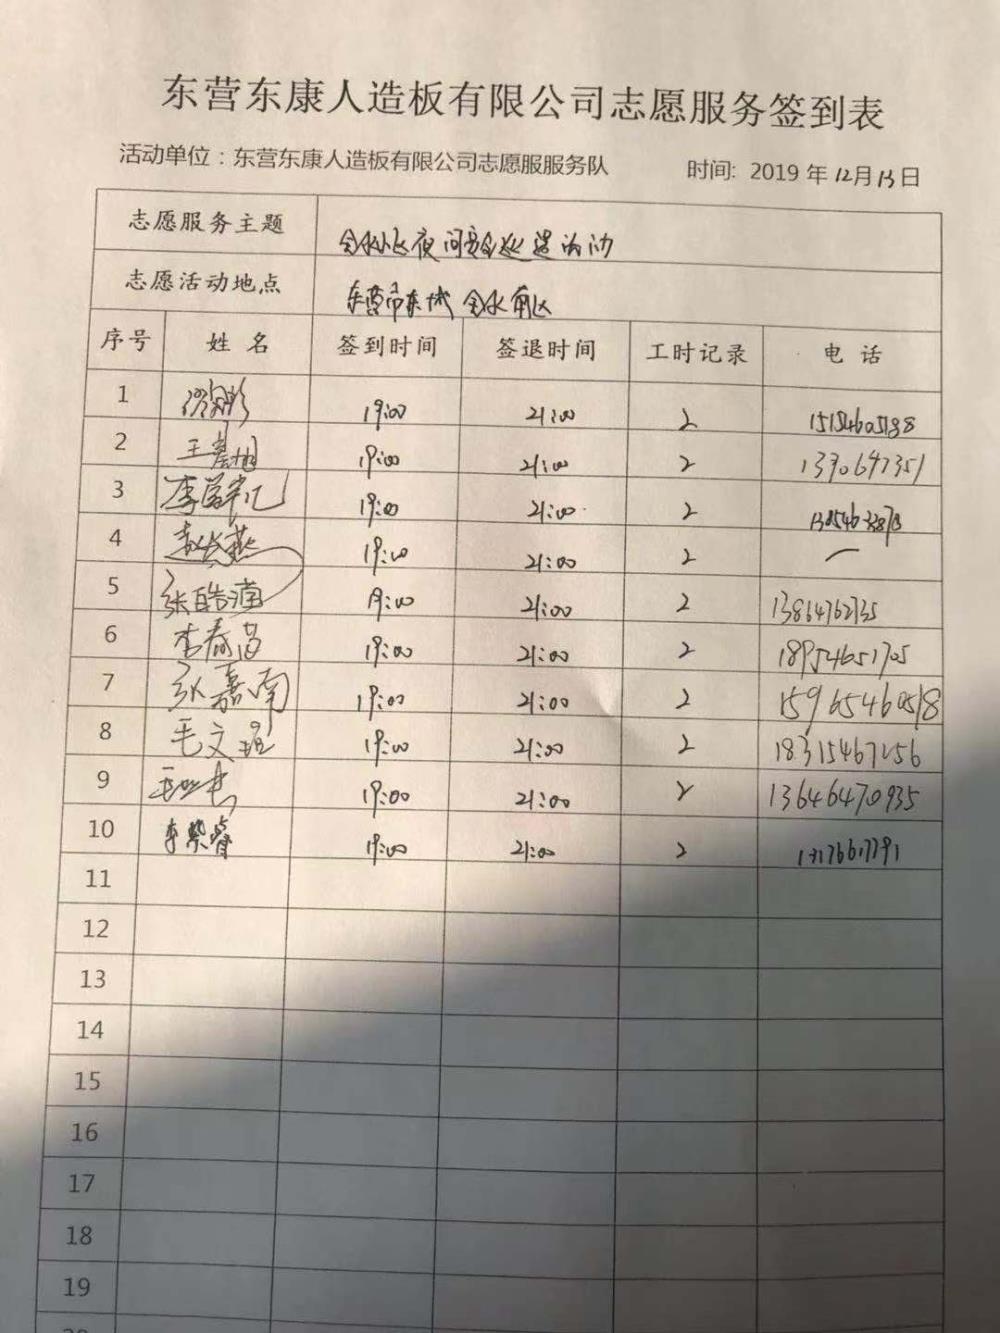 东营东康人造板有限公司志愿服务签到表
活动单位：东营东康人造板有限公司志愿服服务队 时间: 2019 年 12月13日
志愿服务主题 夜间安全巡逻活动
志愿活动地点 东营市东城 金水南区
序号 姓 名 签到时间 签退时间 工时记录 电 话
1 19:00 21:00 2
2 19:00 21:00 2 1390647351
3 19:00 21:00 2
4 赵长燕 19:00 21:00 2 —
5 张皓 19:00 21:00 2
6 李春 19:00 21:00 2 18954651705
7 张嘉南 19:00 21:00 2 15965460518
8 毛文 19:00 21:00 2
9 19:00 21:00 2 13646470935
10 李紫睿 19:00 21:00 2
11
12
13
14
15
16
17
18
19